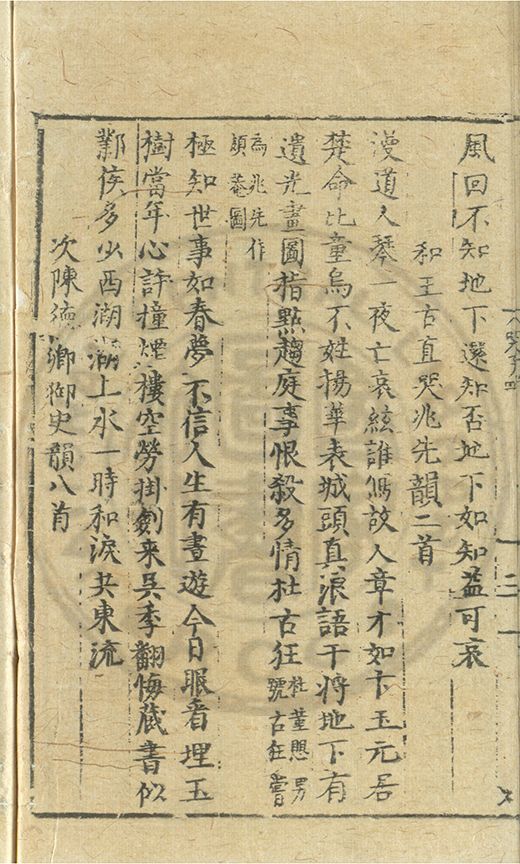 風回不知地下還知否地下如知益可哀
和王古直哭兆先韻二首
漫道人琴一夜亡哀絃誰寫故人章才如卞玉元居
楚命比童烏不姓揚華表城頭真浪語干將地下有
遺光畫圖指點趨庭事恨殺多情杜古狂杜菫思男號古狂嘗
為兆先作順菴圖
極知世事如春夢不信人生有晝遊今日眼看埋玉
樹當年心許撞煙樓空勞掛劍来吳季翻悔藏書似
鄴侯多少西湖湖上水一時和淚共東流
次陳德卿御史韻八首